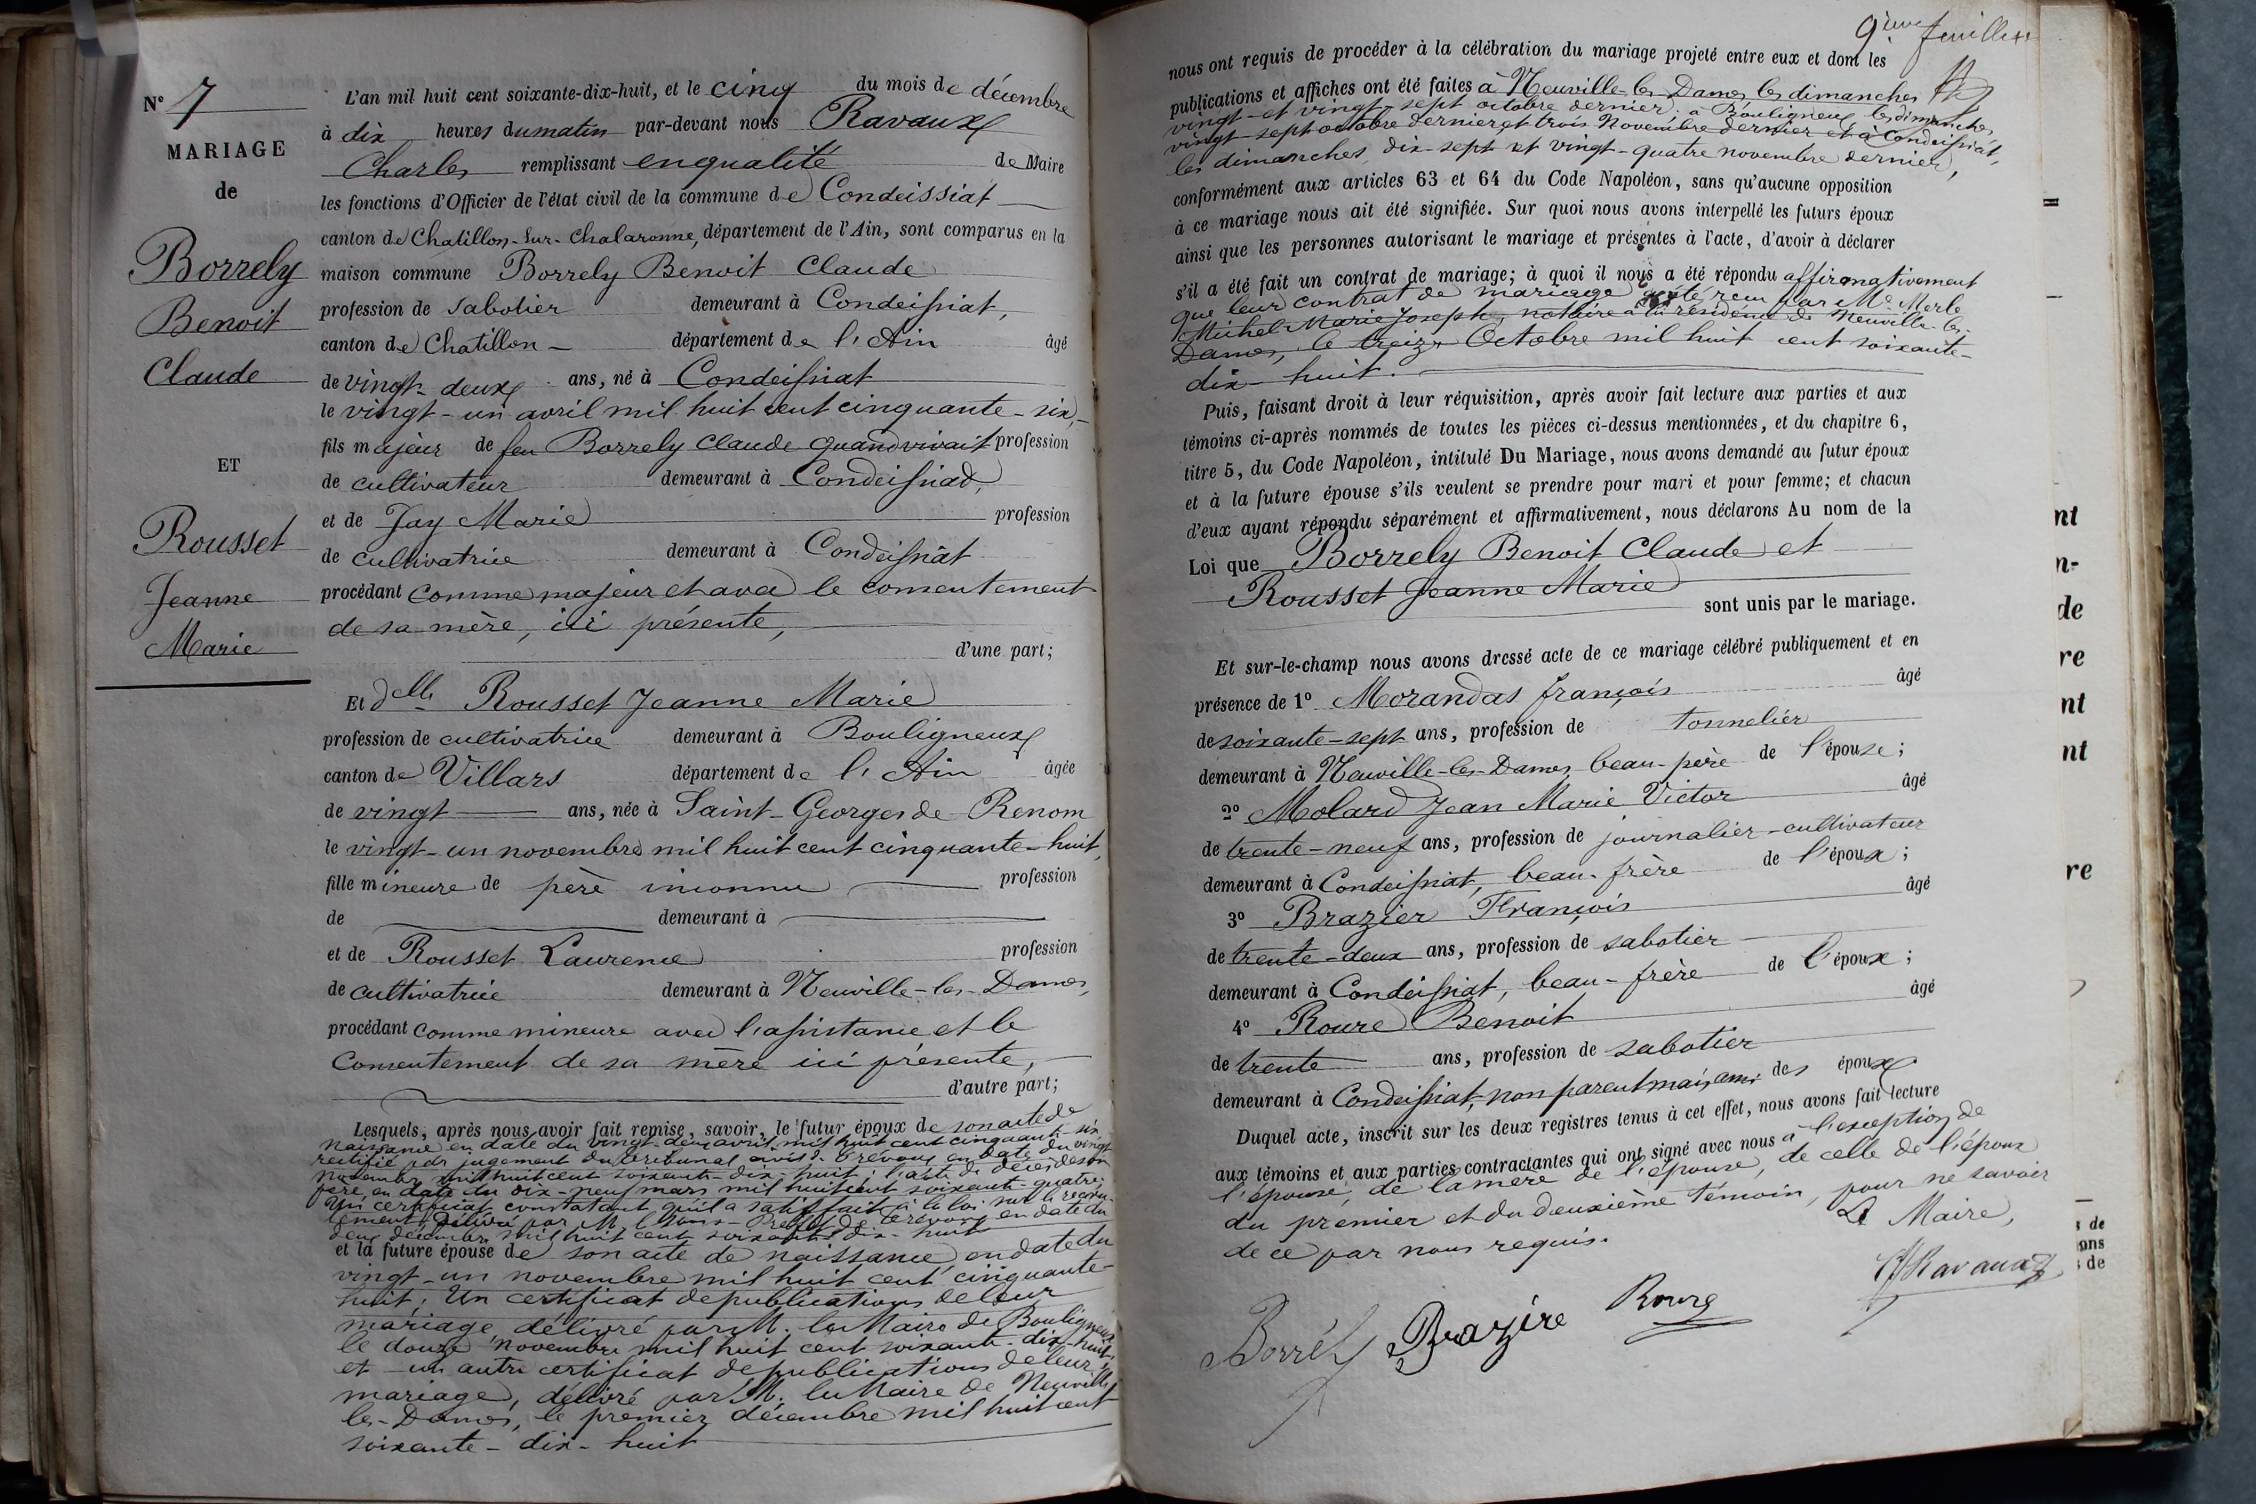 N° 7
MARIAGE
de
Borrely
Benoit
Claude
ET
Rousset
Jeanne
Marie
L'an mil huit cent soixante-dix-huit, et le cinq du mois de décembre
à dix heures du matin par-devant nous Ravaux
Charles remplissant en qualité de Maire
les fonctions d'Officier de l'état civil de la commune de Condeissiat
canton de Chatillon-sur-Chalaronne, département de l'Ain, sont comparus en la
maison commune Borrely Benoit Claude
profession de sabotier demeurant à Condeissiat,
canton de Chatillon département de l'Ain âgé
de vingt-deux ans, né à Condeissiat
le vingt-un avril mil huit cent cinquante-six,
fils majeur de feu Borrely Claude quand vivait profession
de cultivateur demeurant à Condeissiat,
et de Jay Marie profession
de cultivatrice demeurant à Condeissiat
procédant comme majeur et avec le consentement
de sa mère, ici présente,
d'une part;
Et dlle Rousset Jeanne Marie
profession de cultivatrice demeurant à Bouligneux
canton de Villars département de l'Ain âgée
de vingt ans, née à Saint-Georges de Renom
le vingt-un novembre mil huit cent cinquante-huit,
fille mineure de père inconnu profession
de demeurant à
et de Rousset Laurence profession
de cultivatrice demeurant à Neuville-les-Dames,
procédant comme mineure avec l'assistance et le
consentement de sa mère ici présente,
d'autre part;
Lesquels, après nous avoir fait remise, savoir, le futur époux de son acte de
naissance en date du vingt-deux avril mil huit cent cinquante-six
rectifié par jugement du tribunal civil de Trévoux en date du vingt
novembre mil huit cent soixante-dix-huit; l'acte de décès de son
père, en date du dix-neuf mars mil huit cent soixante-quatre;
Un certificat constatant qu'il a satisfait à la loi sur le recru-
tement, délivré par M. le Sous-Préfet de Trévoux en date du
deux décembre mil huit cent soixante dix-huit
et la future épouse de son acte de naissance en date du
vingt-un novembre mil huit cent cinquante-
huit; Un certificat de publications de leur
mariage, délivré par M. le Maire de Bouligneux
le douze novembre mil huit cent soixante-dix-huit,
et un autre certificat de publications de leur
mariage, délivré par M. le Maire de Neuville
les-Dames, le premier décembre mil huit cent
soixante-dix-huit
9ième feuillet
nous ont requis de procéder à la célébration du mariage projeté entre eux et dont les
publications et affiches ont été faites à Neuville-les-Dames, les dimanches
vingt et vingt-sept octobre dernier; à Bouligneux les dimanches
vingt-sept octobre dernier et trois Novembre dernier et à Condeissiat,
les dimanches, dix-sept et vingt-quatre novembre dernier,
conformément aux articles 63 et 64 du Code Napoléon, sans qu'aucune opposition
à ce mariage nous ait été signifiée. Sur quoi nous avons interpellé les futurs époux
ainsi que les personnes autorisant le mariage et présentes à l'acte, d'avoir à déclarer
s'il a été fait un contrat de mariage; à quoi il nous a été répondu affirmativement
que leur contrat de mariage a été reçu par Me Merle
Michel-Marie Joseph, notaire à la résidence de Neuville-les-
Dames, le treize Octobre mil huit cent soixante-
dix-huit.
Puis, faisant droit à leur réquisition, après avoir fait lecture aux parties et aux
témoins ci-après nommés de toutes les pièces ci-dessus mentionnées, et du chapitre 6,
titre 5, du Code Napoléon, intitulé Du Mariage, nous avons demandé au futur époux
et à la future épouse s'ils veulent se prendre pour mari et pour femme; et chacun
d'eux ayant répondu séparément et affirmativement, nous déclarons Au nom de la
Loi que Borrely Benoit Claude et
Rousset Jeanne Marie
sont unis par le mariage.
Et sur-le-champ nous avons dressé acte de ce mariage célébré publiquement et en
présence de 1° Morandas françois âgé
de soixante-sept ans, profession de tonnelier
demeurant à Neuville-les-Dames, beau-père de l'épouse;
2° Molard Jean Marie Victor âgé
de trente-neuf ans, profession de journalier-cultivateur
demeurant à Condeissiat, beau-frère de l'époux;
3° Brazier François âgé
de trente-deux ans, profession de sabotier
demeurant à Condeissiat, beau-frère de l'époux;
4° Roure Benoit âgé
de trente ans, profession de sabotier
demeurant à Condeissiat, non parent mais ami des époux
Duquel acte, inscrit sur les deux registres tenus à cet effet, nous avons fait lecture
aux témoins et aux parties contractantes qui ont signé avec nous à l'exception de
l'épouse, de la mère de l'épouse, de celle de l'époux
du premier et du deuxième témoin, pour ne savoir
de ce par nous requis.
Le Maire,
Ravaux
Borrély Brazire Roure
nt
n-
de
re
nt
nt
re
s de
ons
s de